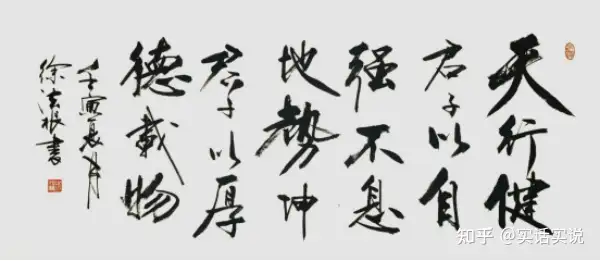 天行健
君子以自
强不息
地勢坤
君子以厚
德載物
壬寅夏月
徐 根書
知乎 @实话实说